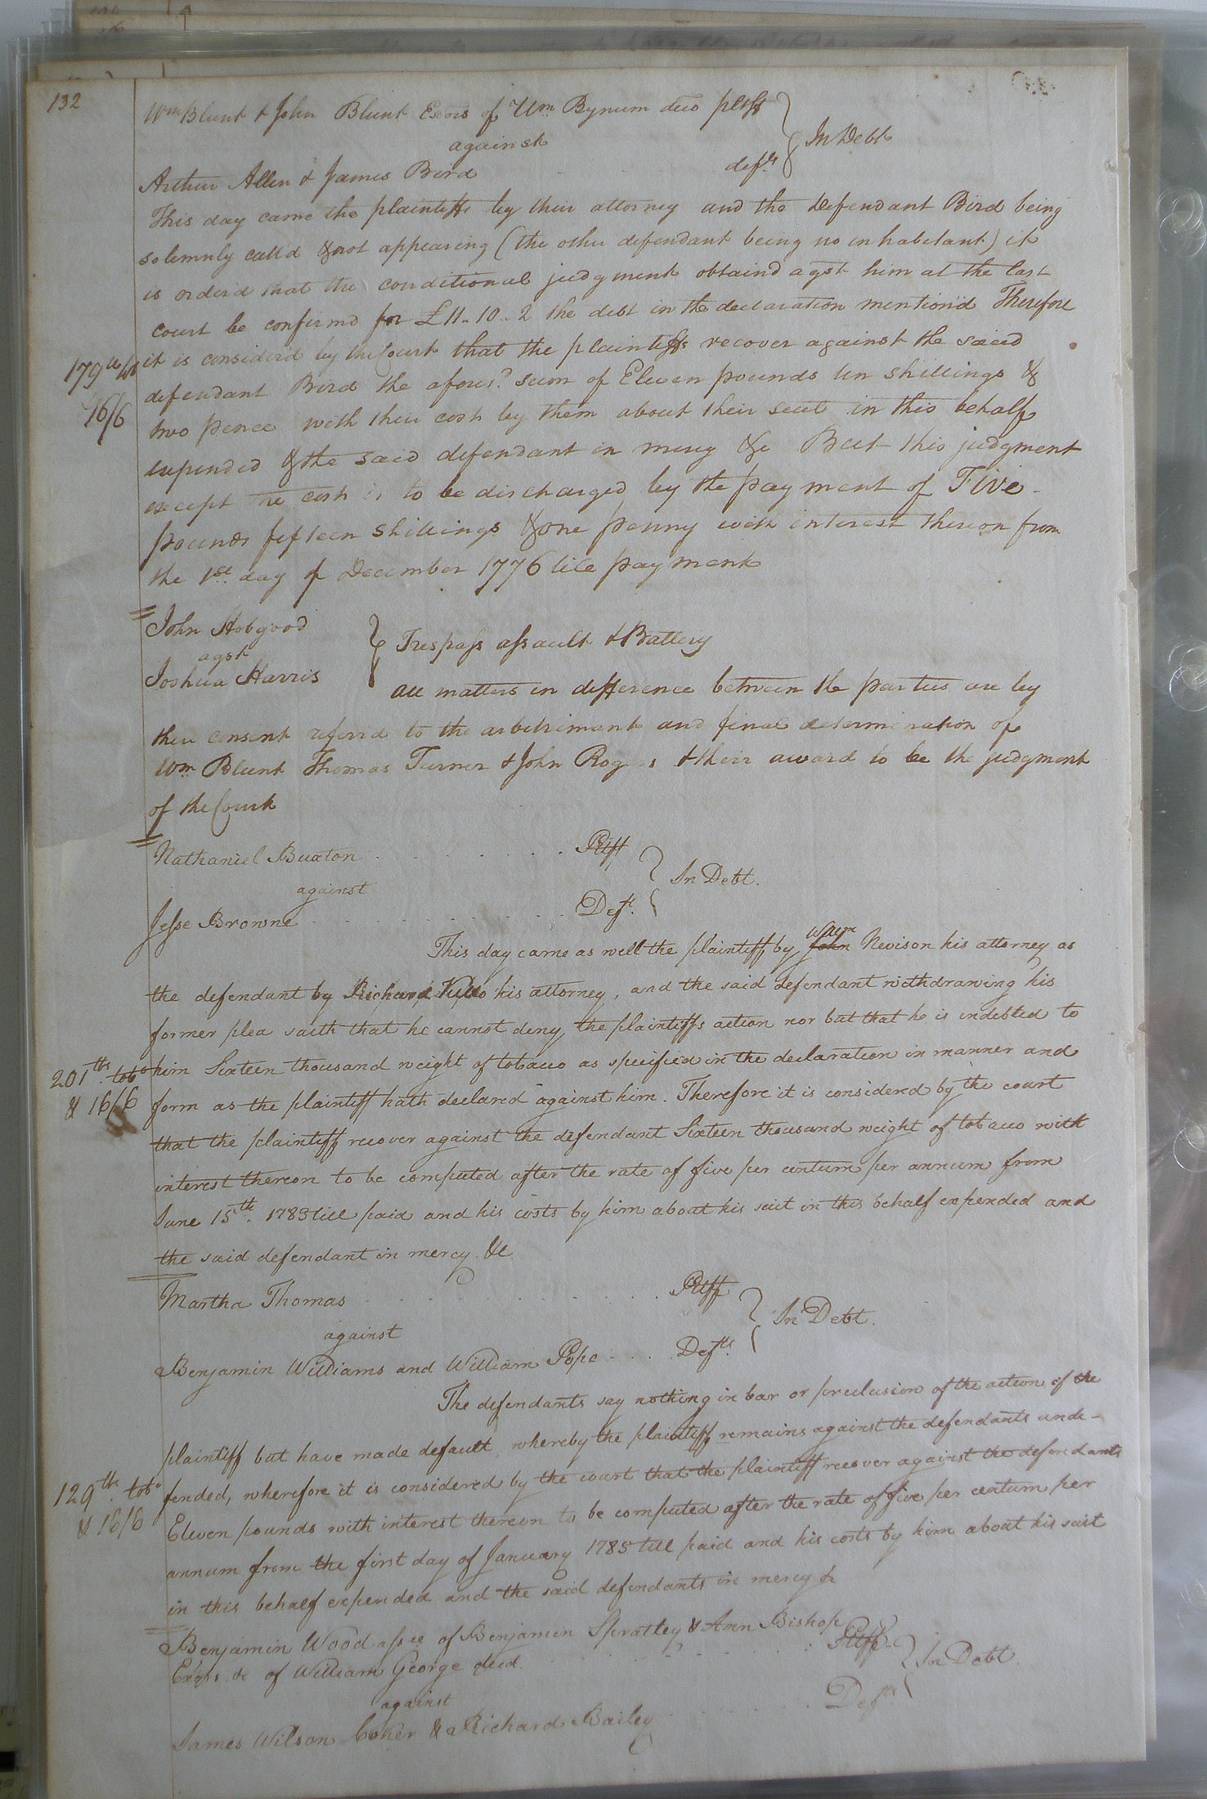 132
Wm Blunt & John Blunt Exors of Wm Bynum decd pltfs
against
In Debt
Arthur Allen & James Bird defts
This day came the plaintiffs by their attorney and the Defendant Bird being
solemnly call'd & not appearing (the other defendant being no inhabitant) it
is order'd that the conditional judgment obtain'd agst him at the last
court be confirmd for £11-10-2 the debt in the declaration mention'd Therefore
it is consider'd by the Court that the plaintiffs recover against the said
179 lb tob
16/6
defendant Bird the afores'd sum of Eleven pounds ten shillings &
two pence with their costs by them about their suit in this behalf
expended & the said defendant in mercy &c But this judgment
except the costs is to be discharged by the payment of Five
pounds fifteen shillings & one penny with interest thereon from
the 1st day of December 1776 till payment
John Hobgood
agst
Joshua Harris
Trespass assault & Battery
all matters in difference between the parties are by
their consent referrd to the arbitriment and final determination of
Wm Blunt Thomas Turner & John Rogers & their award to be the judgment
of the Court
Nathaniel Buxton Pltff
against
In Debt.
Jesse Browne Deft.
This day came as well the plaintiff by John Nevison his attorney as
the defendant by Richard his attorney, and the said defendant withdrawing his
former plea saith that he cannot deny the plaintiffs action nor but that he is indebted to
him Sixteen thousand weight of tobacco as specified in the declaration in manner and
201 lbs. tobo
& 16/6
form as the plaintiff hath declared against him. Therefore it is considered by the court
that the plaintiff recover against the defendant Sixteen thousand weight of tobacco with
interest thereon to be computed after the rate of five per centum per annum from
June 15th. 1783 till paid and his costs by him about his suit in this behalf expended and
the said defendant in mercy &c
Martha Thomas Pltff
against
In Debt.
Benjamin Williams and William Pope Defts.
The defendants say nothing in bar or preclusion of the action of the
plaintiff but have made default, whereby the plaintiff remains against the defendants unde-
fended, wherefore it is considered by the court that the plaintiff recover against the defendants
129 lb. tobo
& 16/6
Eleven pounds with interest thereon to be computed after the rate of five per centum per
annum from the first day of January 1785 till paid and his costs by him about his suit
in this behalf expended and the said defendants in mercy &c
Benjamin Wood assee of Benjamin Spratley & Ann Bishop
Exors. &c of William George decd. Pltff
against
In Debt.
James Wilson Coker & Richard Bailey Defts